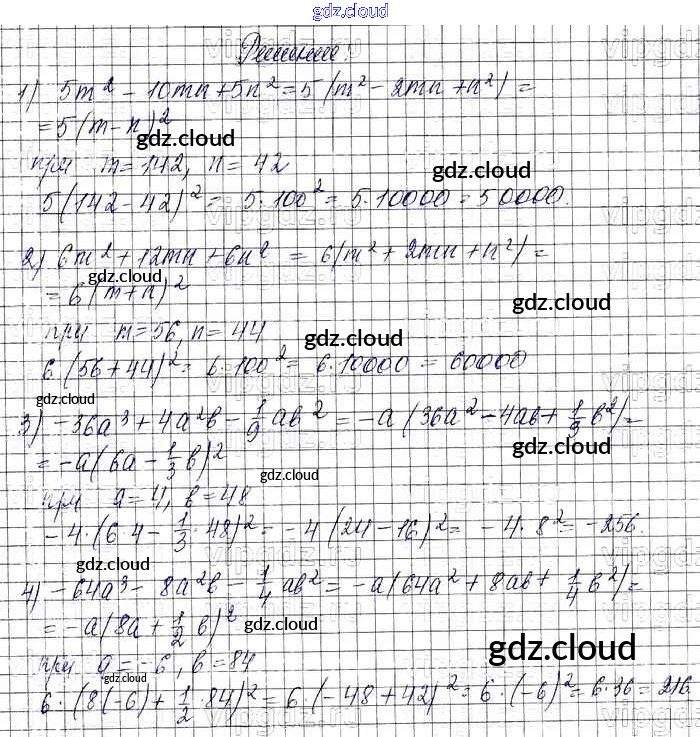 gdz.cloud
Решение.
1) 5m² - 10mn + 5n² = 5(m² - 2mn + n²) =
= 5(m - n)²
gdz.cloud
при m = 142, n = 42
gdz.cloud
5(142 - 42)² = 5·100² = 5·10000 = 50000.
2) 6m² + 12mn + 6n² = 6(m² + 2mn + n²) =
gdz.cloud
= 6(m + n)²
gdz.cloud
при m = 56, n = 44
gdz.cloud
6·(56 + 44)² = 6·100² = 6·10000 = 60000
gdz.cloud
3) -36a³ + 4a²b - 1/9 ab² = -a(36a² - 4ab + 1/9 b²) =
= -a(6a - 1/3 b)²
gdz.cloud
gdz.cloud
при a = 4, b = 48
-4·(6·4 - 1/3·48)² = -4(24 - 16)² = -4·8² = -256.
gdz.cloud
gdz.cloud
4) -64a³ - 8a²b - 1/4 ab² = -a(64a² + 8ab + 1/4 b²) =
= -a(8a + 1/2 b)²
gdz.cloud
gdz.cloud
при a = -6, b = 84
gdz.cloud
6·(8(-6) + 1/2·84)² = 6·(-48 + 42)² = 6·(-6)² = 6·36 = 216